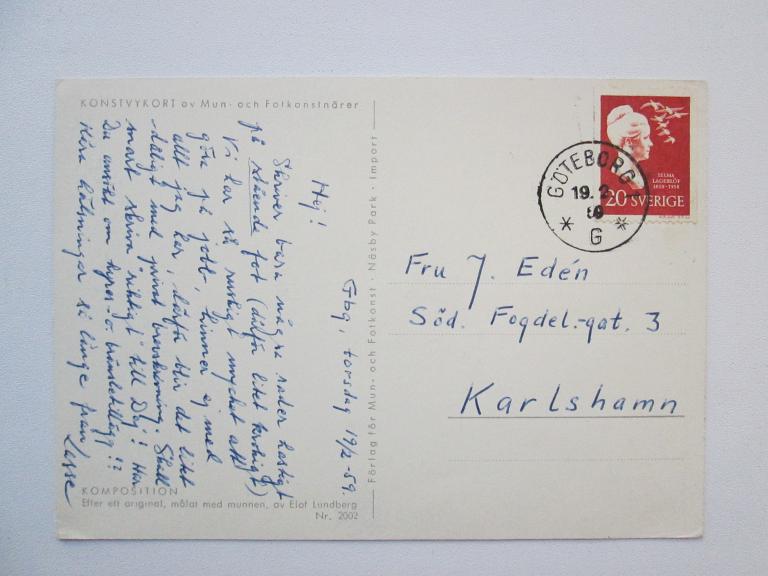 KONSTVYKORT av Mun- och Fotkonstnärer
Gbg, torsdag 19/2-59.
Hej!
Skriver bara några rader hastigt
på stående fot (därför litet krokigt)
Vi har så mycket att
göra på jobb, hinner ej med
allt jag bör, därför blir det litet
dåligt med privat Skall
snart skriva "riktigt" till Dej! Har
Du ansökt om hyres- o. bränsletillägg!?
Kära hälsningar så länge från
Lasse
KOMPOSITION
Efter ett original, målat med munnen, av Elof Lundberg
Nr. 2002
Förlag för Mun- och Fotkonst · Näsby Park · Import
SELMA
LAGERLÖF
1858-1958
20 SVERIGE
GÖTEBORG 1
19. 2.
59
* G *
Fru J. Edén
Söd. Fogdel.-gat. 3
Karlshamn